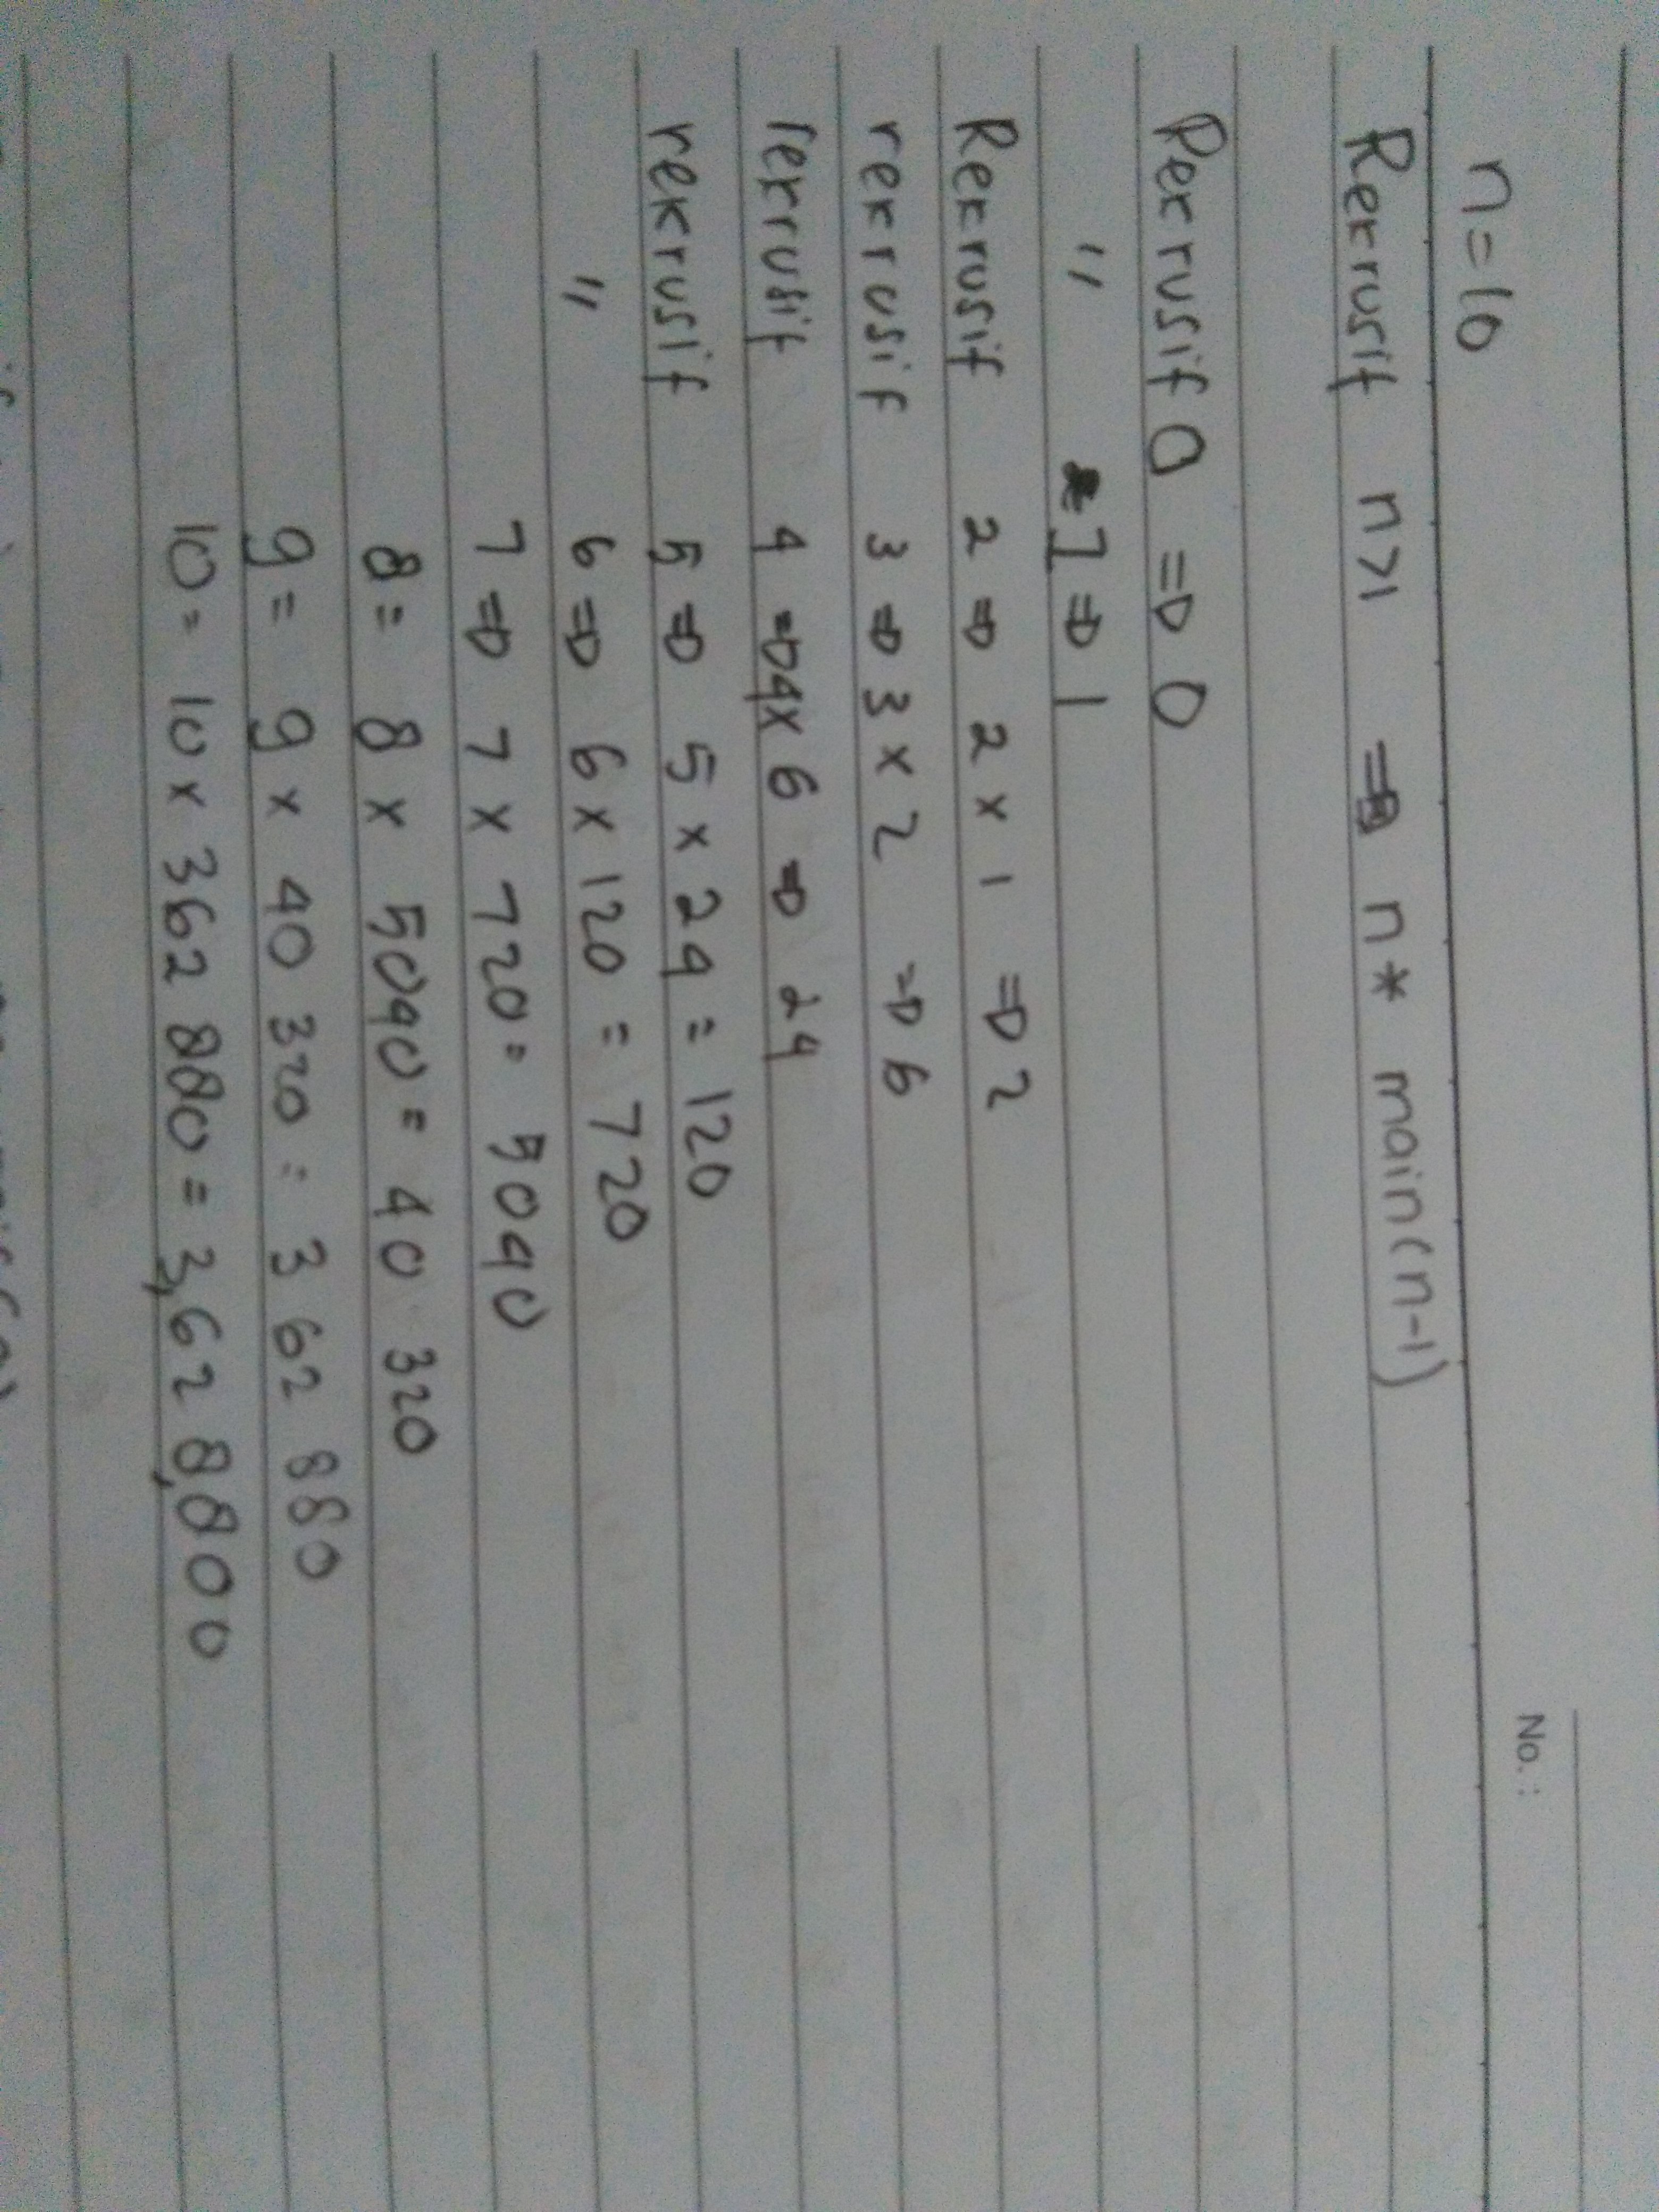 No. :
n = 10
Rekrusif n>1 => n * main(n-1)
Rekrusif 0 => 0
" 1 => 1
Rekrusif 2 => 2 x 1 => 2
rekrusif 3 => 3 x 2 => 6
rekrusif 4 => 4 x 6 => 24
rekrusif 5 => 5 x 24 = 120
" 6 => 6 x 120 = 720
7 => 7 x 720 = 5040
8 = 8 x 5040 = 40 320
9 = 9 x 40 320 = 3 62 880
10 = 10 x 362 880 = 3,628,800